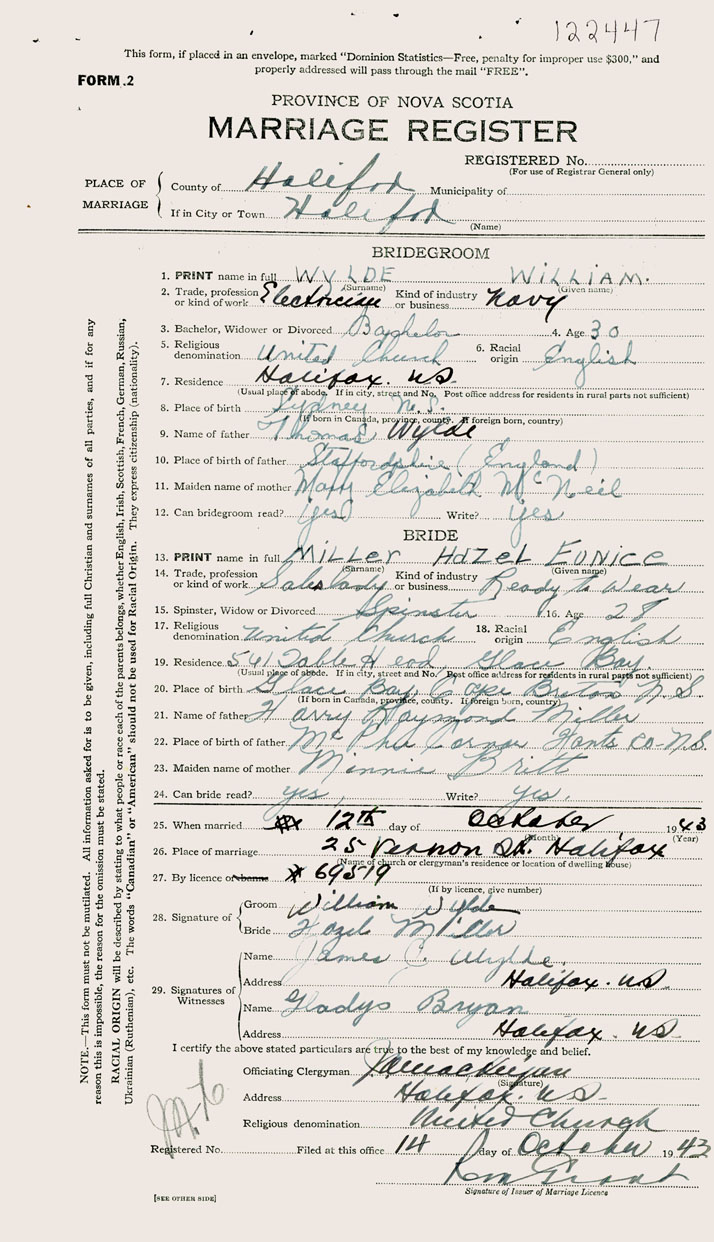 122447
This form, if placed in an envelope, marked "Dominion Statistics—Free, penalty for improper use $300," and
properly addressed will pass through the mail "FREE".
FORM 2
PROVINCE OF NOVA SCOTIA
MARRIAGE REGISTER
REGISTERED No.
(For use of Registrar General only)
PLACE OF MARRIAGE
County of Halifax Municipality of
If in City or Town Halifax
(Name)
BRIDEGROOM
1. PRINT name in full WYLDE WILLIAM.
(Surname) (Given name)
2. Trade, profession or kind of work Electrician Kind of industry or business Navy
3. Bachelor, Widower or Divorced Bachelor 4. Age 30
5. Religious denomination United Church 6. Racial origin English
7. Residence Halifax. NS.
(Usual place of abode. If in city, street and No. Post office address for residents in rural parts not sufficient)
8. Place of birth Sydney N.S.
(If born in Canada, province, county. If foreign born, country)
9. Name of father Thomas Wylde
10. Place of birth of father Staffordshire (England)
11. Maiden name of mother Mary Elizabeth McNeil
12. Can bridegroom read? (yes) Write? yes
BRIDE
13. PRINT name in full MILLER HAZEL EUNICE
(Surname) (Given name)
14. Trade, profession or kind of work Saleslady Kind of industry or business Ready to Wear
15. Spinster, Widow or Divorced Spinster 16. Age 28
17. Religious denomination United Church 18. Racial origin English
19. Residence 541 Table Head, Glace Bay.
(Usual place of abode. If in city, street and No. Post office address for residents in rural parts not sufficient)
20. Place of birth Glace Bay, Cape Breton N.S
(If born in Canada, province, county. If foreign born, country)
21. Name of father Harry Haymond Miller
22. Place of birth of father Mc Phee Corner Hants Co-N.S.
23. Maiden name of mother Minnie Britt
24. Can bride read? yes, Write? yes.
25. When married 12th day of October 1943
(Month) (Year)
26. Place of marriage 25 Vernon St. Halifax
(Name of church or clergyman's residence or location of dwelling house)
27. By licence or banns # 69519
(If by licence, give number)
28. Signature of
Groom William Wylde
Bride Hazel Miller
29. Signatures of Witnesses
Name James C. Wylde.
Address Halifax. NS
Name Gladys Bryan
Address Halifax. NS
I certify the above stated particulars are true to the best of my knowledge and belief.
Officiating Clergyman
(Signature)
Address Halifax. NS.
Religious denomination United Church
Registered No. Filed at this office 14 day of October 1943
Signature of Issuer of Marriage Licence
[SEE OTHER SIDE]
NOTE.—This form must not be mutilated. All information asked for is to be given, including full Christian and surnames of all parties, and if for any
reason this is impossible, the reason for the omission must be stated.
RACIAL ORIGIN will be described by stating to what people or race each of the parents belongs, whether English, Irish, Scottish, French, German, Russian,
Ukrainian (Ruthenian), etc. The words "Canadian" or "American" should not be used for Racial Origin. They express citizenship (nationality).